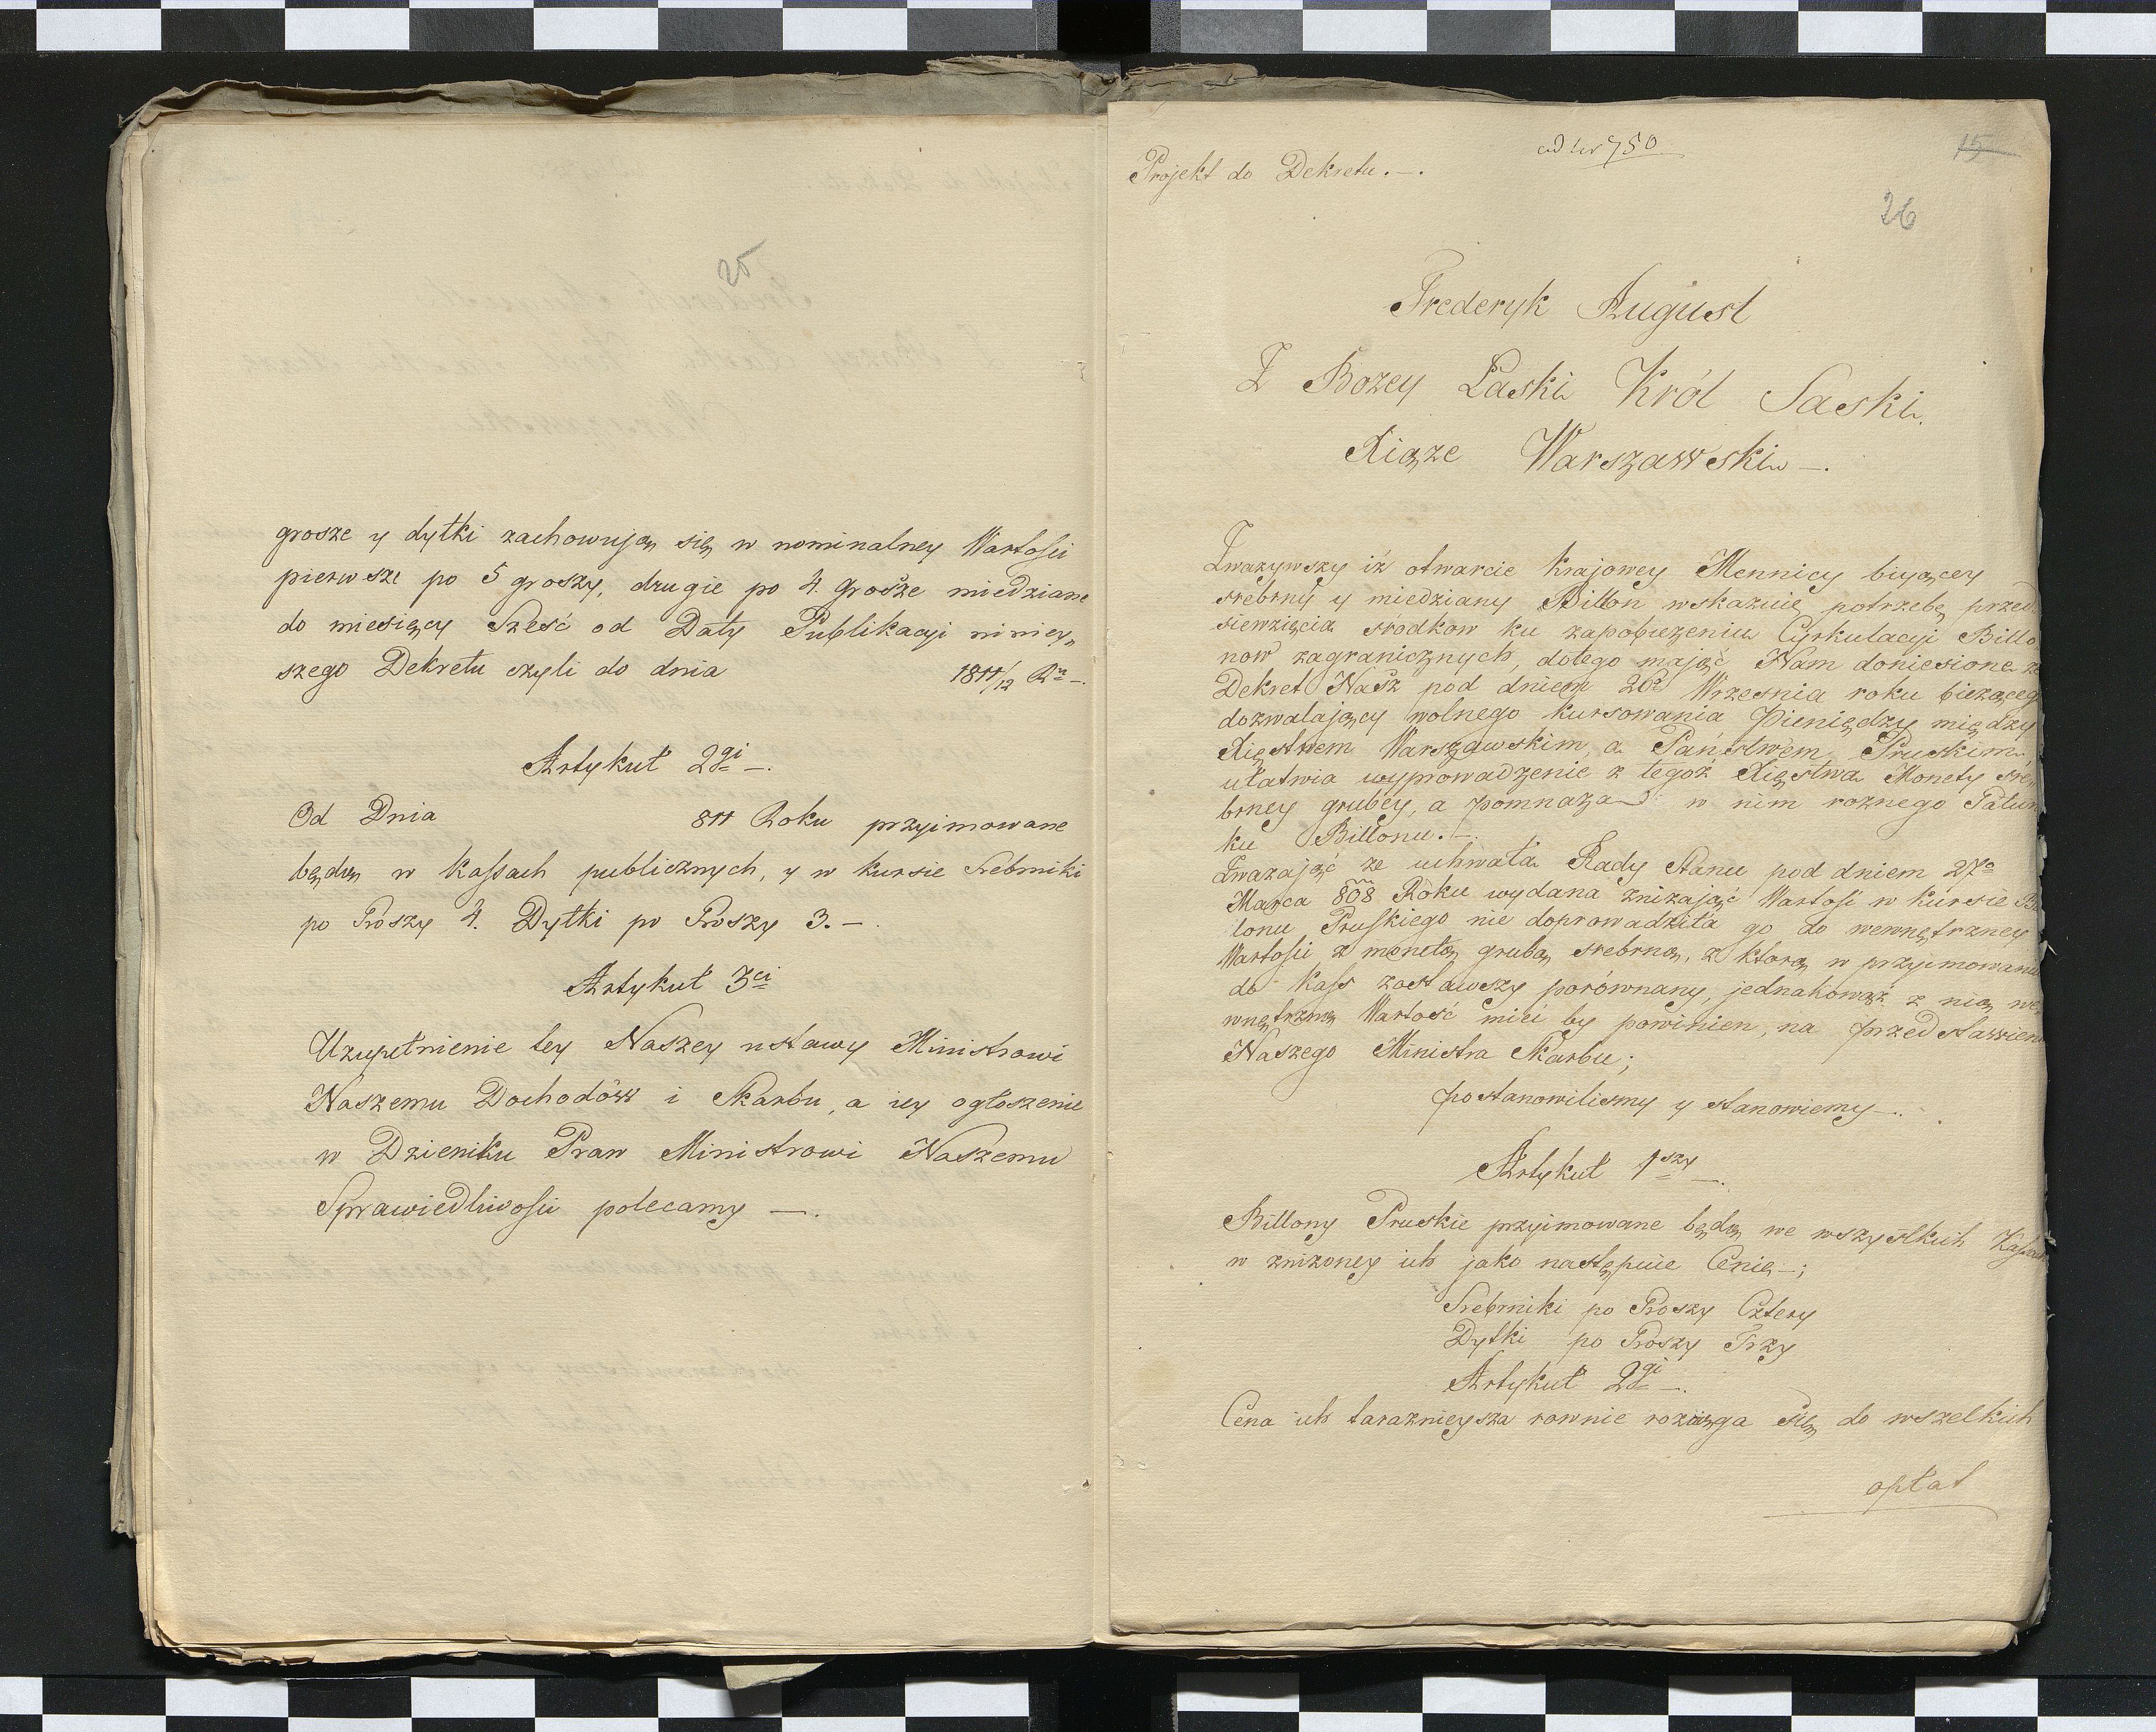 25
grosze y dytki zachowują się w nominalney Wartosci
pierwsze po 5 groszy, drugie po 4. grosze miedziane
do miesięcy Sześć od Daty Publikacyi niniey„
szego Dekretu czyli do dnia 1811/12 Ru —.
Artykuł 2gi —.
Od Dnia 811 Roku przyimowane
będą w Kassach publicznych, y w kursie Srebrniki
po Groszy 4. Dytki po Groszy 3. —.
Artykuł 3ci
Uzupełnienie tey Naszey ustawy Ministrowi
Naszemu Dochodów i Skarbu, a iey ogłoszenie
w Dzieniku Praw Ministrowi Naszemu
Sprawiedliwosci polecamy —.
Projekt do Dekretu. —.
ad Nr 750
15
26
Frederyk August
Z Bozey Łaski Król Saski
Xiąze Warszawski —.
Zwazywszy iż otwarcie krajowey Mennicy biyącey
srebrny y miedziany Billon wskazuie potrzebę przed
siewzięcia srodkow ku zapobiezeniu Cyrkulacyi Billo
now zagranicznych, dotego mając Nam doniesione ze
Dekret Nasz pod dniem 20o Wrzesnia roku biezącego
dozwalający wolnego kursowania Pieniędzy między
Xięstwem Warszawskim, a Państwem Pruskim
ułatwia wyprowadzenie z tegoż Xięstwa Monety sre„
brney grubey, a pomnaza w nim roznego Gatun
ku Billonu. —.
Zwazając ze uchwała Rady Stanu pod dniem 27o
Marca 808 Roku wydana znizając Wartość w kursie Bi
lonu Pruskiego nie doprowadziła go do wewnętrzney
Wartosci z monetą grubą srebrną, z ktorą w przyimowaniu
do Kass zostawszy porównany, jednakowąż z nią we
wnętrzną Wartość mieć by powinien, na przedstawienie
Naszego Ministra Skarbu;
postanowilismy y stanowiemy —.
Artykuł 1szy —.
Billony Pruskie przyimowane będą we wszystkich Kassach
w znizoney ich jako następuie Cenie —;
Srebrniki po Groszy Cztery
Dytki po Groszy Trzy
Artykuł 2gi —.
Cena ich taraznieysza rownie rozciąga się do wszelkich
opłat